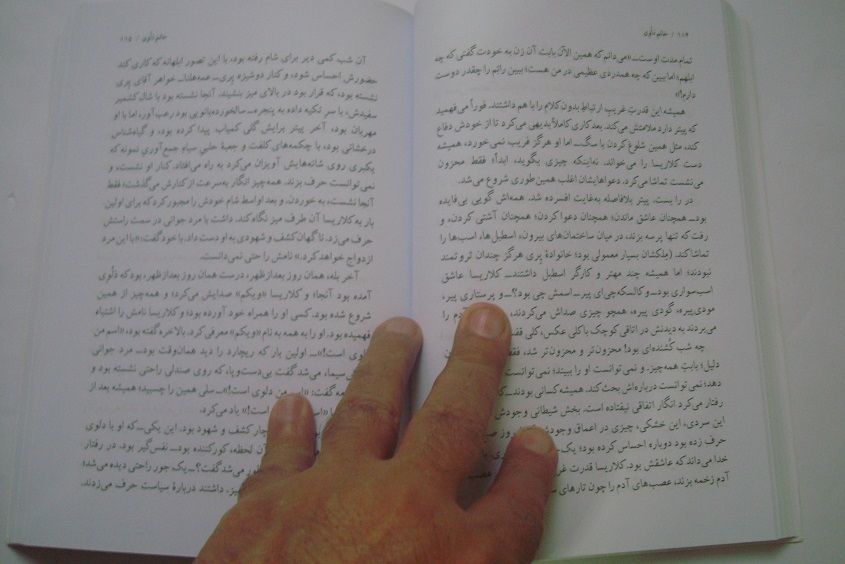 ۱۱۴ / خانم دَلُوِی
تمام مدت اوست... «می‌دانم که همین الان بابت آن زن به خودت گفتی که چه
ابلهم؛ اما ببین که چه همدردی عظیمی در من هست؛ ببین رابَم را چقدر دوست
دارم!»
همیشه این قدرتِ غریبِ ارتباطِ بدون کلام را با هم داشتند. فوراً می‌فهمید
که پیتر دارد ملامتش می‌کند. بعد کاری کاملاً بدیهی می‌کرد تا از خودش دفاع
کند، مثل همین شلوغ کردن با سگ... اما او هرگز فریب نمی‌خورد، همیشه
دست کلاریسا را می‌خواند. نه‌اینکه چیزی بگوید، ابداً؛ فقط محزون
می‌نشست تماشا می‌کرد. دعواهایشان اغلب همین‌طوری شروع می‌شد.
در را بست. پیتر بلافاصله به‌غایت افسرده شد. همه‌اش گویی بی‌فایده
بود... همچنان عاشق ماندن؛ همچنان دعوا کردن؛ همچنان آشتی کردن، و
رفت که تنها پرسه بزند، در میان ساختمان‌های بیرون، اسطبل‌ها، اسب‌ها را
تماشا کند. (ملکشان بسیار معمولی بود؛ خانوادهٔ پری هرگز چندان ثروتمند
نبودند؛ اما همیشه چند مهتر و کارگر اسطبل داشتند... کلاریسا عاشق
اسب‌سواری بود... و کالسکه‌چی‌ای پیر... اسمش چی بود؟... و پرستاری پیر،
مودی پیره، گودی پیره، همچو چیزی صداش می‌کردند، آدم را
می‌بردند به دیدنش در اتاقی کوچک با کلی عکس، کلی قفس
چه شب کُشنده‌ای بود! محزون‌تر و محزون‌تر شد، فقط
دلیل؛ بابت همه‌چیز. و نمی‌توانست او را ببیند؛ نمی‌توانست
دهد؛ نمی‌توانست درباره‌اش بحث کند. همیشه کسانی بودند... که
رفتار می‌کرد انگار اتفاقی نیفتاده است. بخش شیطانی وجودش
این سردی، این خشکی، چیزی در اعماق وجودش روز
حرف زده بود دوباره احساس کرده بود؛ یک
خدا می‌داند که عاشقش بود. کلاریسا قدرت
آدم زخمه بزند، عصب‌های آدم را چون تارهای
خانم دَلُوِی / ۱۱۵
آن شب کمی دیر برای شام رفته بود، با این تصور ابلهانه که کاری کند
حضورش احساس شود، و کنار دوشیزه پری... عمه هلنا... خواهر آقای پری
نشسته بود، که قرار بود در بالای میز بنشیند. آنجا نشسته بود با شال کشمیر
سفیدش، با سرِ تکیه داده به پنجره... سالخورده‌بانویی بود رعب‌آور، اما با او
مهربان بود، آخر پیتر برایش گلی کمیاب پیدا کرده بود، و گیاه‌شناس
درخشانی بود، با چکمه‌های کلفت و جعبهٔ حلبیِ سیاهِ جمع‌آوریِ نمونه که
یکبری روی شانه‌هایش آویزان می‌کرد به راه می‌افتاد. کنار او نشست، و
نمی‌توانست حرف بزند. همه‌چیز انگار به‌سرعت از کنارش می‌گذشت؛ فقط
آنجا نشست، به خوردن. و بعد اواسط شام خودش را مجبور کرد که برای اولین
بار به کلاریسا آن طرف میز نگاه کند. داشت با مرد جوانی در سمت راستش
حرف می‌زد. ناگهان کشف و شهودی به او دست داد. با خود گفت: «با این مرد
ازدواج خواهد کرد.» نامش را حتی نمی‌دانست.
آخر بله، همان روز بعدازظهر، درست همان روز بعدازظهر، بود که دَلُوِی
آمده بود آنجا؛ و کلاریسا «ویکم» صدایش می‌کرد؛ و همه‌چیز از همین
شروع شده بود. کسی او را همراه خود آورده بود؛ و کلاریسا نامش را اشتباه
فهمیده بود. او را به همه به نام «ویکم» معرفی کرد. بالاخره گفته بود، «اسم من
دلوی است!»... اولین بار که ریچارد را دید همان‌وقت بود... مرد جوانی
می‌شد گفت بی‌دست‌وپا، که روی صندلی راحتی نشسته بود و
گفت: من دلوی است!»... سَلی همین را چسبید؛ همیشه بعد از
است!» یاد می‌کرد.
کشف و شهود بود. این یکی... که او با دلوی
آن لحظه، کورکننده بود... نفس‌گیر بود. در رفتار
می‌شد گفت؟... یک جور راحتی دیده می‌شد؛
داشتند دربارهٔ سیاست حرف می‌زدند.